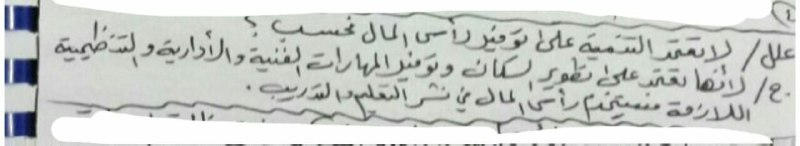 علل / لا تعتمد التنمية على توفير رأس المال فحسب ؟
ج / لأنها تعتمد على تطوير السكان وتوفير المهارات الفنية والأدارية والتنظيمية
اللازمة فيستخدم رأس المال في نشر التعليم والتدريب .